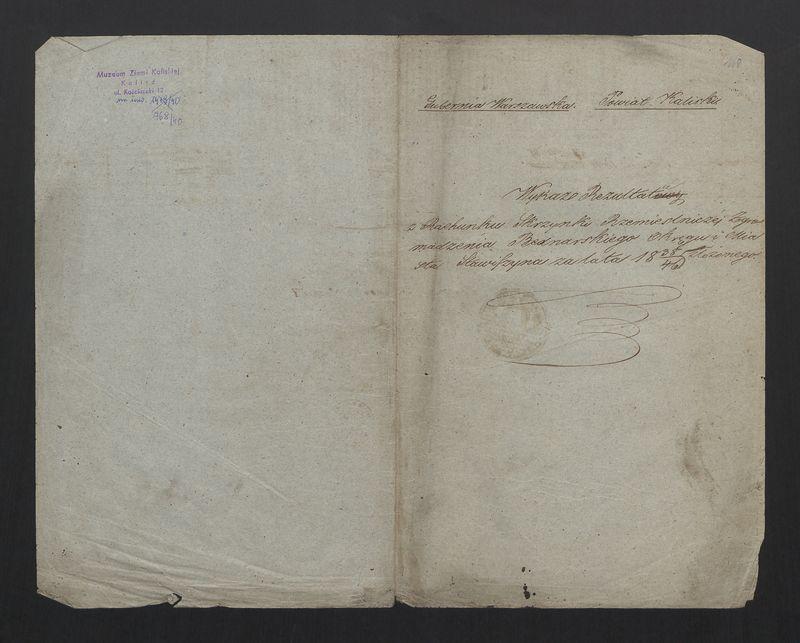 Muzeum Ziemi Kaliskiej
Kalisz
ul. Kościuszki 12
768/40
Gubernia Warszawska. Powiat Kaliski
Wykaz Rezultatów
z Rachunku Skrzynki Rzemieślniczej Zgro
madzenia Bednarskiego Okręgu i Mia
sta Stawiszyna za lata 18 złożonego